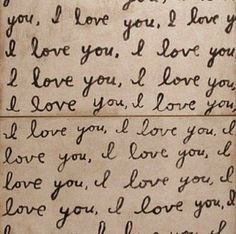 you, I love you, I love
I love you, I love you,
I love you, I love you,
I love you, I love you,
I love you, I love you, I
love you, I love you, I
love you, I love you, I
love you, I love you, I
I love you, I love